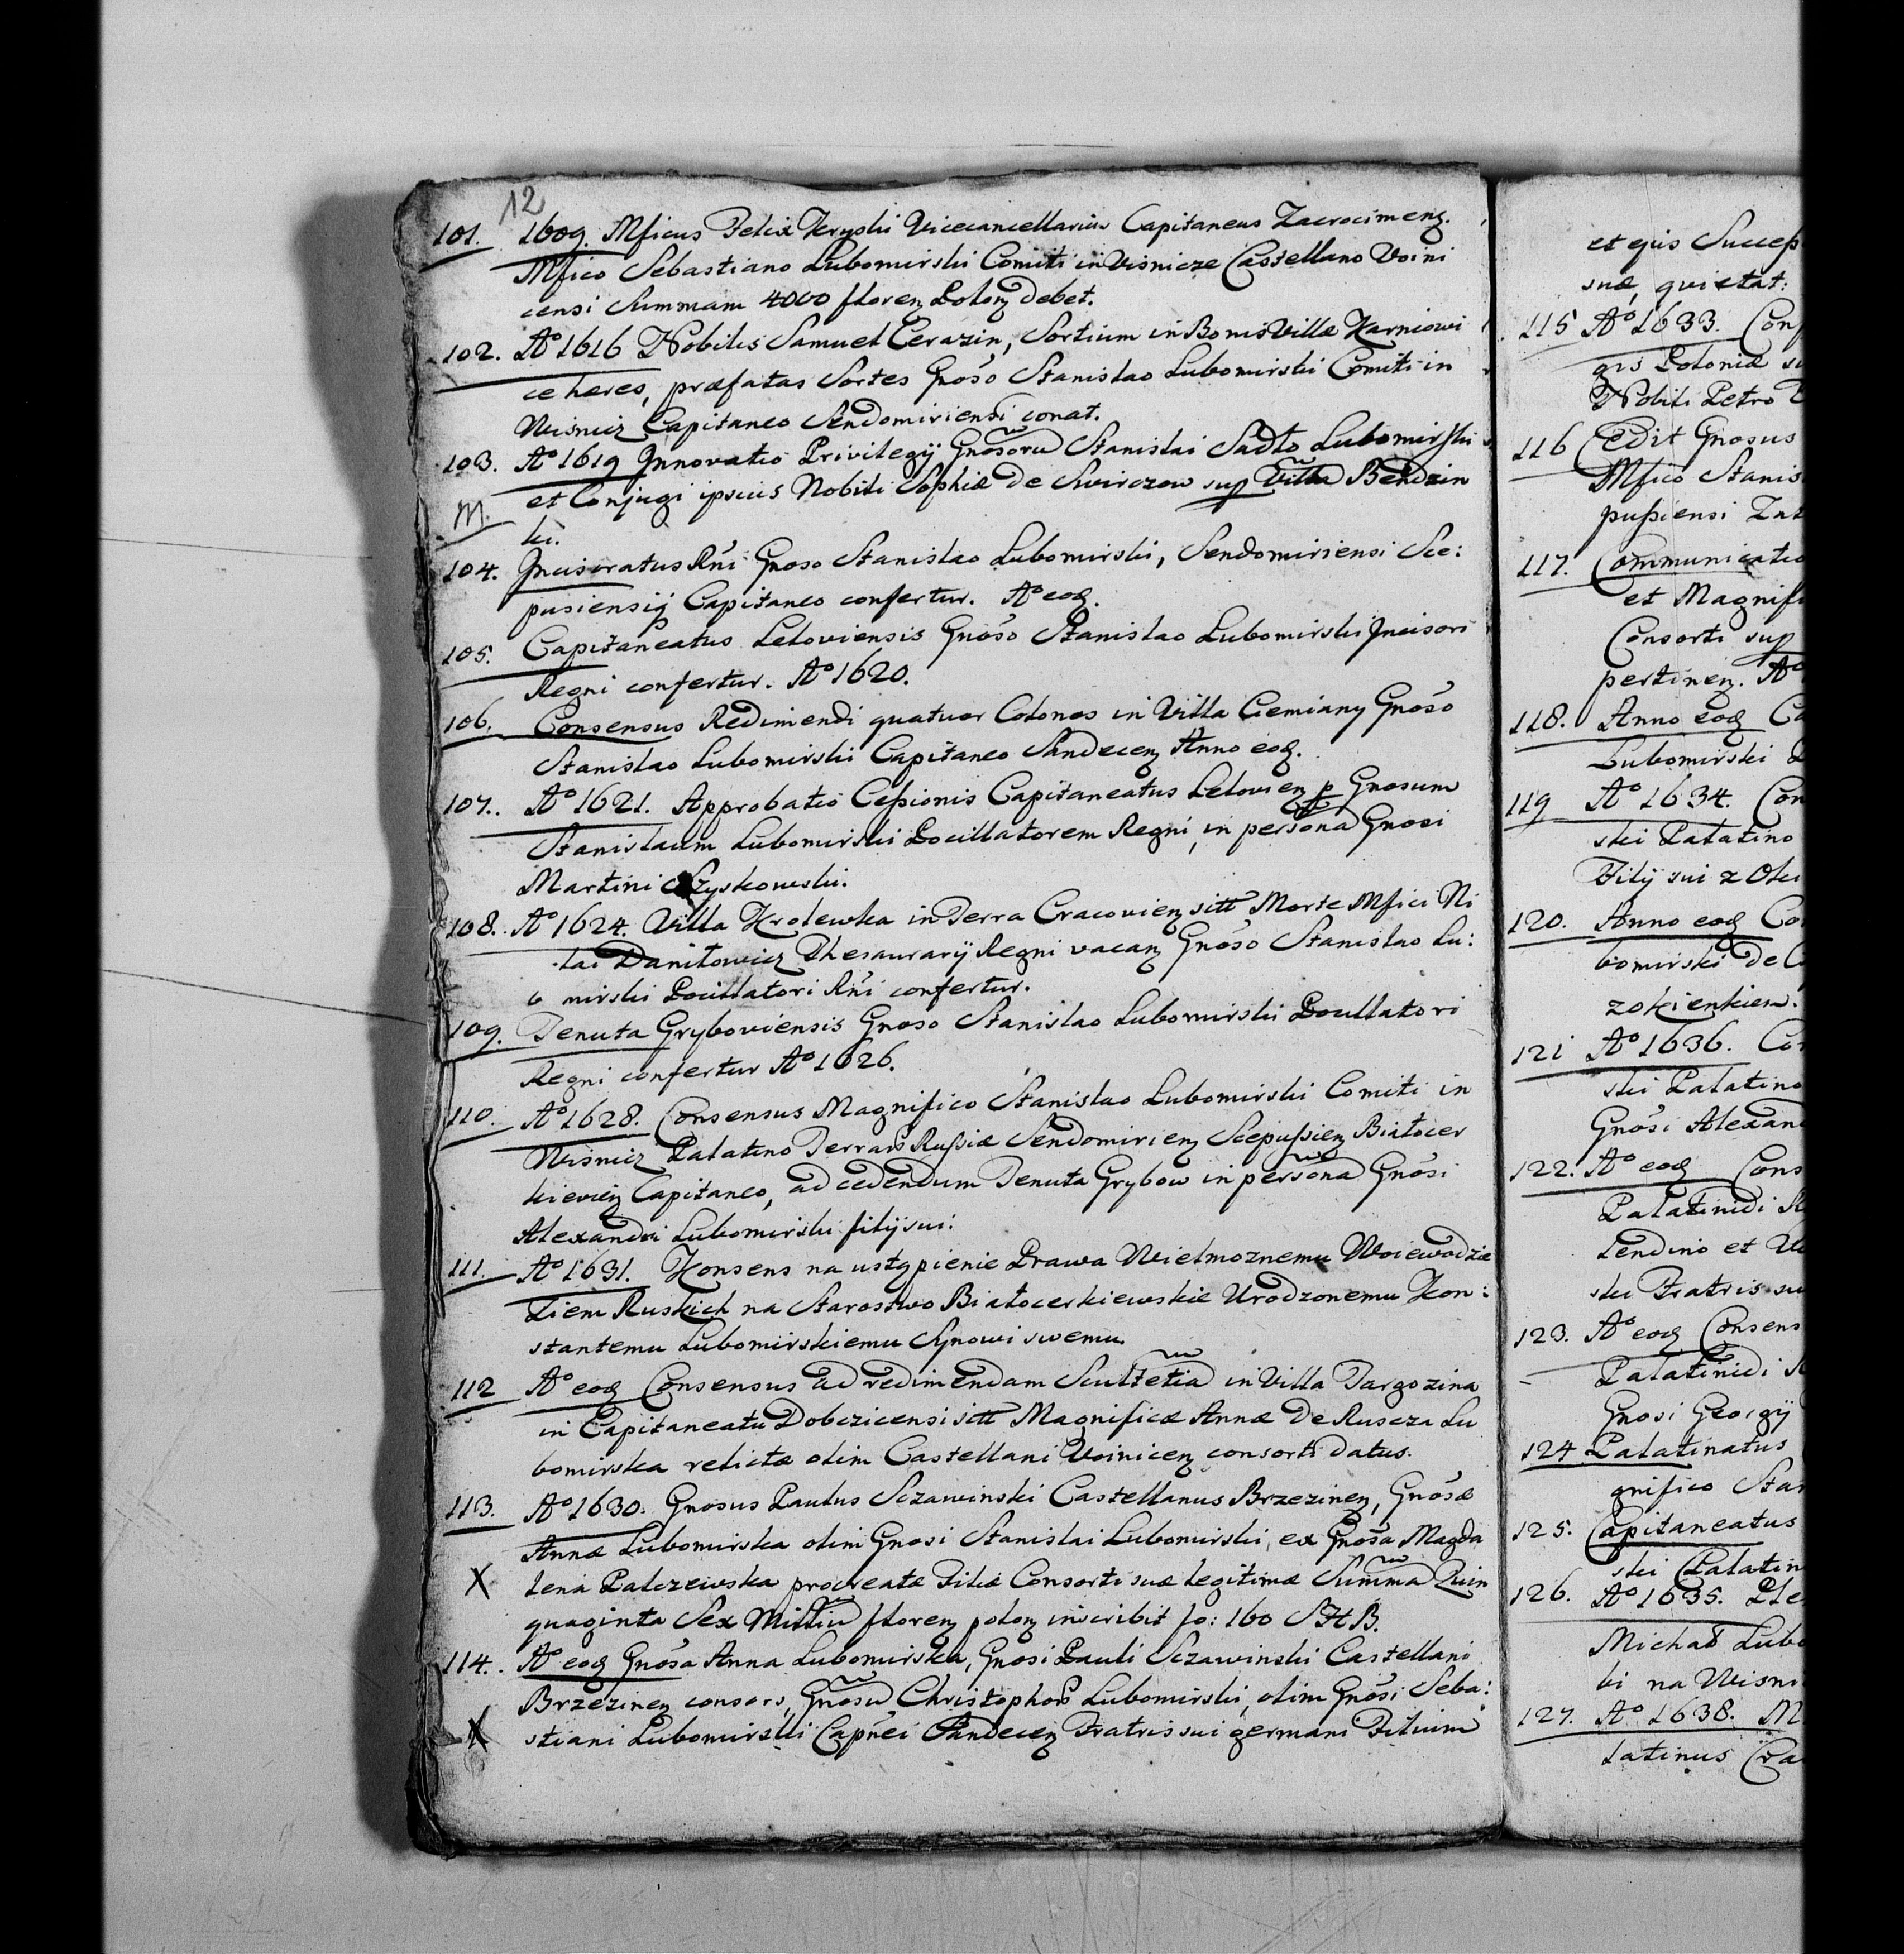 12
101. 1609. Mficus Felix Kryski Vicecancellarius Capitaneus Zacrocimenz.
Mfico Sebastiano Lubomirski Comiti in Visnicze Castellano Voini
censi Summam 4000 floren Polon debet.
102. Aº 1616 Nobilis Samuel Cerazin, Sortium in Bonis Villæ Karniowi
ce hæres, præfatas Sortes Gnoso Stanislao Lubomirski Comiti in
Wisnicz Capitaneo Sendomiriensi donat.
103. Aº 1619 Innovatio Privilegij Gnosoru Stanislai Sadło Lubomirski
et Conjugi ipsius Nobili Sophiæ de Swirczow sup Villa Bendzin
M. ki.
104. Incisoratus Rni Gnoso Stanislao Lubomirski, Sendomiriensi Sce:
pusiensiq Capitaneo confertur. Aº eod.
105. Capitaneatus Leloviensis Gnoso Stanislao Lubomirski Incisori
Regni confertur. Aº 1620.
106. Consensus Redimendi quatuor Colonos in Villa Ciemiany Gnoso
Stanislao Lubomirski Capitaneo Sandecen Anno eod.
107. Aº 1621. Approbatio Cessionis Capitaneatus Lelovien p Gnosum
Stanislaum Lubomirski Pocillatorem Regni, in persona Gnosi
Martini Szyskowski.
108. Aº 1624. Villa Krolewka in Terra Cracovien sitt Morte Mfici Ni
lai Daniłowicz Thesaurarij Regni vacan Gnoso Stanislao Lu:
b mirski Pocillatori Rni confertur.
109. Tenuta Gryboviensis Gnoso Stanislao Lubomirski Pocillatori
Regni confertur Aº 1626.
110. Aº 1628. Consensus Magnifico Stanislao Lubomirski Comiti in
Wisnicz Palatino Terrar Russiæ Sendomirien Scepussien Białocer
kievien Capitaneo, ad cedendum Tenuta Grybow in persona Gnosi
Alexandri Lubomirski filij sui.
111. Aº 1631. Konsens na ustąpienie Prawa Wielmoznemu Woiewodzie
Ziem Ruskich na Starostwo Białocerkiewskie Urodzonemu Kon:
stantemu Lubomirskiemu Synowi swemu.
112 Aº eod Consensus ad redimendam Scultetia in Villa Targozina
in Capitaneatu Dobczicensi sitt Magnificæ Annæ de Ruscza Lu
bomirska relictæ olim Castellani Voinicen consorti datus.
113. Aº 1630. Gnosus Paulus Sczawinski Castellanus Brzezinen, Gnosæ
Annæ Lubomirska olim Gnosi Stanislai Lubomirski, ex Gnosa Magda
X lena Palczewska procreatæ Filiæ Consorti suæ legitimæ Summa Quin
quaginta Sex Milliu floren polon inscribit fo: 160 SHB.
114. Aº eod Gnosa Anna Lubomirska, Gnosi Pauli Sczawinski Castellani
Brzezinen consors, Gnosu Christophor Lubomirski, olim Gnosi Seba:
X stiani Lubomirski Capnei Sandecen Fratris sui germani Filium
et ejus Success
suæ, quietat:
115 Aº 1633. Con
gis Poloniæ su
Nobili Petro
116 Cedit Gnosus
Mfico Stanis
pussiensi Int
117. Communicatio
et Magnifi
Consorti sup
pertinen. Aº
118. Anno eod Co
Lubomirski
119 Aº 1634. Con
ski Palatino
Filij sui z Oki
120. Anno eod Co
bomirski de
zokienkiem.
121 Aº 1636. Con
ski Palatino
Gnosi Alexan
122. Aº eod Cons
Palatinidi
Lendino et
ski Fratris su
123. Aº eod Consens
Palatinidi
Gnosi Georgij
124 Palatinatus
gnifico Stan
125. Capitaneatus
ski Palatin
126. Aº 1635. Ple
Michał Lubo
bi na Wisni
127. Aº 1638. M
latinus Cra